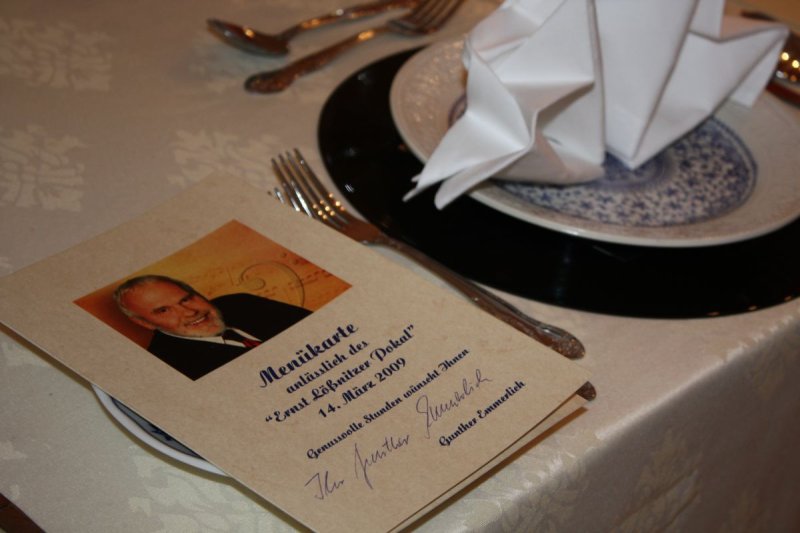 Menükarte
anlässlich des
"Ernst Lößnitzer Pokal"
14. März 2009
Genussvolle Stunden wünscht Ihnen
Ihr Gunther Emmerlich
Gunther Emmerlich